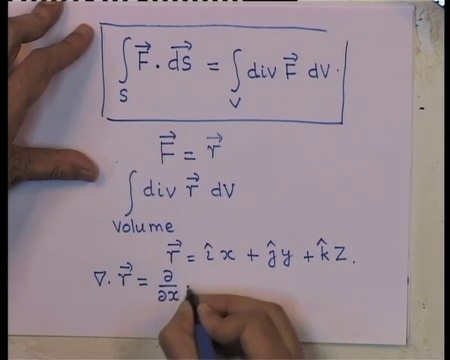 ∫_S F⃗ · dS⃗ = ∫_V div F⃗ dV.
F⃗ = r⃗
∫_Volume div r⃗ dV
r⃗ = î x + ĵ y + k̂ z.
∇. r⃗ = ∂/∂x